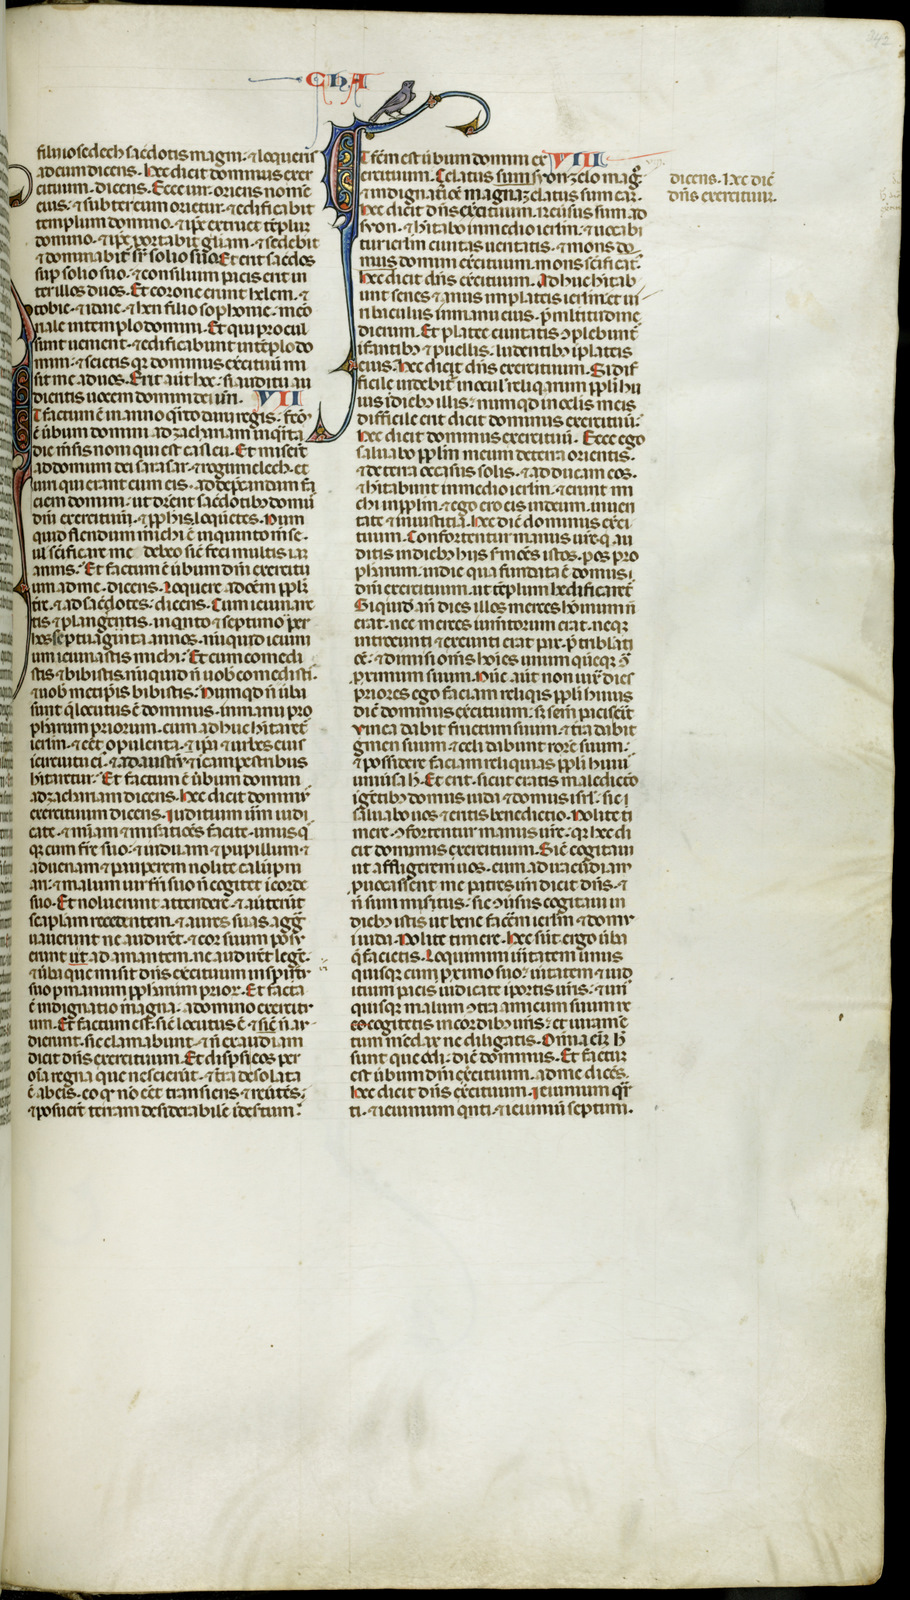 CHA
filiu iosedech sac̄dotis magni· ⁊ loqueris
ad eum dicens. Hec dicit dominus exer
cituum. dicens. Ecce uir oriens nomē
eius· ⁊ subter eum orietur· ⁊ edificabit
templum domino· ⁊ ip̄e extruet tēplum
domino· ⁊ ip̄e portabit gl̄iam· ⁊ sedebit
⁊ dominabit̄ sr̄ solio suo. Et erit sac̄dos
sup̄ solio suo· ⁊ consilium pacis erit in
ter illos duos. Et corone erunt helem· ⁊
tobie· ⁊ idaie· ⁊ hen filio sophonie· mēo
riale in templo domini. Et qui procul
sunt uenient· ⁊ edificabunt in tēplo do
mini· ⁊ scietis qr̄ dominus exercituū mi
sit me ad uos. Erit aūt hec· si auditu au
dieritis uocem domini dei ur̄i. VII
Et factum ē in anno q̄rto darii regis· fc̄m
ē ūbum domini ad zachariam in q̄rta
die m̄sis noni qui est casleu. Et miserūt
ad domum dei sarasar· ⁊ rogumelech· et
uiri qui erant cum eis· ad dep̄candam fa
ciem domini· ut dicerent sac̄dotib; domꝰ
dn̄i exercituum· ⁊ pph̄is loquētes. Num
quid flendum michi ē in quinto m̄se·
ul̄ sc̄ificare me debeo sic̄ feci multis iam
annis. Et factum ē ūbum dn̄i exercitu
um ad me· dicens. Loquere ad oēm pplm̄
tr̄e· ⁊ ad sac̄dotes· dicens. Cum ieiunare
tis ⁊ plangeritis in qnto ⁊ septimo per
hos septuaginta annos· nūquid ieiuni
um ieiunastis michi. Et cum comedi
stis ⁊ bibistis· nūquid n̄ uob̄ comedistis·
⁊ uob̄ metip̄is bibistis. Numqd n̄ ūba
sunt q̄ locutus ē dominus· in manu pro
phetarum priorum· cum adhuc hitaret̄
ierl̄m· ⁊ eēt opulenta· ⁊ ip̄a ⁊ urbes eius
in circuitu eiꝰ· ⁊ ad austrū ⁊ in campestribus
hitaretur. Et factum ē ūbum domini
ad zachariam dicens. Hec dicit dominꝰ
exercituum dicens. Iuditium uerum iudi
cate· ⁊ mi͠am ⁊ mis̄atiōes facite· unusq̄
q; cum fr̄e suo· ⁊ uiduam ⁊ pupillum ⁊
aduenam ⁊ pauperem nolite calūpni
ari· ⁊ malum uir fr̄i suo n̄ cogitet i corde
suo. Et noluerunt attendere· ⁊ auert̄unt
scapulam recedentem· ⁊ aures suas agḡ
uauerunt ne audirēt· ⁊ cor suum posu
erunt ut adamantem· ne audirent legē·
⁊ ūba que misit dn̄s exercituum in spiritu
suo p̄ manum pph̄arum prior̄. Et facta
ē indignatio magna· a domino exercitu
um. Et factum est· sic̄ locutus ē ⁊ sic̄ n̄ au
dierunt· sic clamabunt· ⁊ n̄ exaudiam
dicit dn̄s exercituum. Et disp̄si eos per
oīa regna que nescierūt· ⁊ tr̄a desolata
ē ab eis· eo q̄ n̄ eēt transiens ⁊ reūtēs·
⁊ posuerūt terram desiderabilē i desertum.
Et fc̄m est ūbum domini ex VIII
ercituum. Zelatus sum syon zelo mag̊·
⁊ indignatiōe magna zelatus sum eam.
Hec dicit dn̄s exercituum. reūsus sum ad
syon· ⁊ hitabo in medio ierl̄m· ⁊ uocabi
tur ierl̄m ciuitas ueritatis· ⁊ mons do
mus domini exercituum· mons sc̄ificat̄.
Hec dicit dn̄s exercituum. Adhuc hitab
unt senes ⁊ anus in plateis ierl̄m· et ui
ri baculus in manu eius· p̄ multitudine
dierum. Et platee ciuitatis ꝯplebunt̄
infantib; ⁊ puellis· ludentib; i plateis
eius. Hec dicit dn̄s exercituum. Si dif
ficile uidebit̄ in ocul̄ reliq̄arum ppl̄i hu
ius i dieb; illis· numqd in oclis meis
difficile erit dicit dominus exercituū.
Hec dicit dominus exercituū. Ecce ego
saluabo pplm̄ meum de terra orientis·
⁊ de terra occasus solis· ⁊ adducam eos·
⁊ hitabunt in medio ierl̄m· ⁊ erunt mi
chi in pplm̄· ⁊ ego ero eis in deum· in ueri
tate ⁊ in iustitia. Hec dic̄ dominus exerci
tuum. Confortentur manus ur̄e· q̄ au
ditis in dieb; hiis s̄mōes istos· p̄ os pro
phetarum· in die qua fundata ē domus
dn̄i exercituum· ut tēplum hedificaret̄.
Si quid aн̄ dies illos merces hominum n̄
erat· nec merces iumentorum erat· neq;
introeunti ⁊ exeunti erat pax· p̄ tribulati
ōe· ⁊ dimisi om̄s hoīes unumquemq; ꝯ
p̄ximum suum. Nūc aūt non iux̄ dies
priores ego faciam reliqiis ppl̄i huius
dic̄ dominus exercituum· s; sem̄ pacis erit·
vinea dabit fructum suum· ⁊ tr̄a dabit
gmen suum ⁊ celi dabunt rorē suum·
⁊ possidere faciam reliquias ppl̄i huiꝰ
uniūsa h̄. Et erit· sicut eratis maledictio
i gētib; domus iuda ⁊ domus isrl̄· sic
saluabo uos ⁊ eritis benedictio. Nolite ti
mere· ꝯfortentur manus ur̄e· qr̄ hec di
cit dominus exercituum. Sic̄ cogitaui
ut affligerem uos· cum ad iracūdiam
p̄uocassent me patres ur̄i dicit dn̄s· ⁊
n̄ sum mis̄tus· sic ꝯūsus cogitaui in
dieb; istis ut bene facerem ierl̄m ⁊ domꝰ
iuda. Nolite timere. Hec sūt ergo ūba
q̄ facietis. Loquimini ūitatem unus
quisque cum p̄ximo suo· ūitatem ⁊ iud
itium pacis iudicate i portis ur̄is· ⁊ un̄
quisq; malum ꝯtra amicum suum ne
cogitetis in cordib; ur̄is· et iuramē
tum mendax ne diligatis. Omnia eī h̄
sunt que odi· dic̄ dominus. Et factum
est ūbum dn̄i exercituum· ad me dicēs.
Hec dicit dn̄s exercituum. Ieiunium qr̄
ti· ⁊ ieiunium qnti· ⁊ ieiuniū septimi·
dicens. Hec dic̄
dn̄s exercituum.